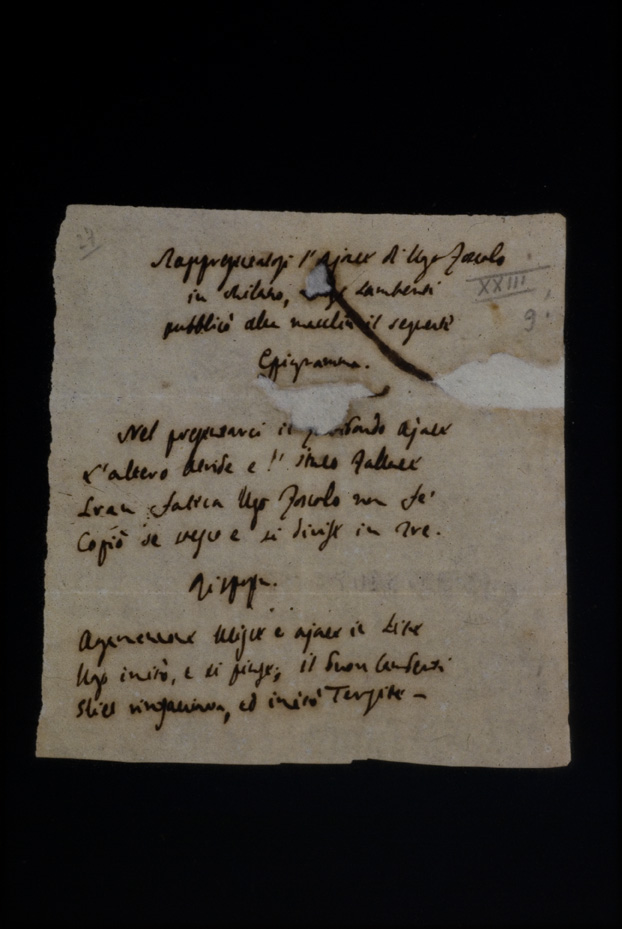 27
Rappresentossi l'Ajace di Ugo Foscolo
in Milano, Luigi Lamberti
pubblicò alla macchia il seguente
XXIII
9
Epigramma.
Nel presentarci il furibondo Ajace
L'altero Atride e l' Itaco fallace
Gran fatica Ugo Foscolo non fe'
Copiò se stesso e si divise in tre.
Risposta.
Agamennone Ulisse e Ajace in Lite
Ugo imitò, e si pinse; il buon Lamberti
ed imitò Tersite –